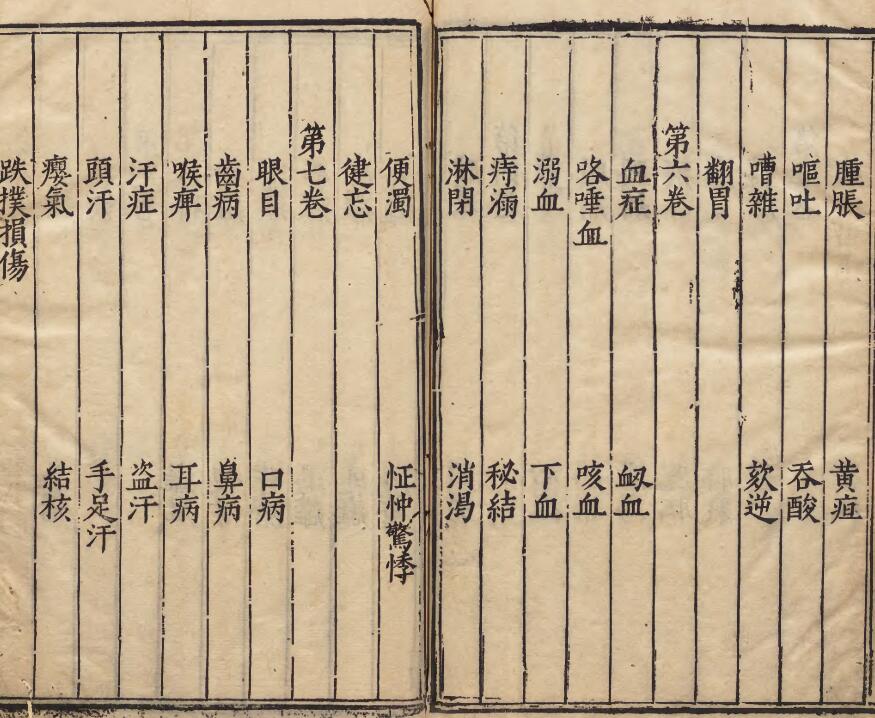 腫脹　黄疸
嘔吐　吞酸
嘈雜　欬逆
翻胃
第六卷
血症　衂血
咯唾血　咳血
溺血　下血
痔漏　秘結
淋閉　消渴
便濁　怔忡驚悸
健忘
第七卷
眼目　口病
齒病　鼻病
喉痺　耳病
汗症　盗汗
頭汗　手足汗
癭氣　結核
跌撲損傷